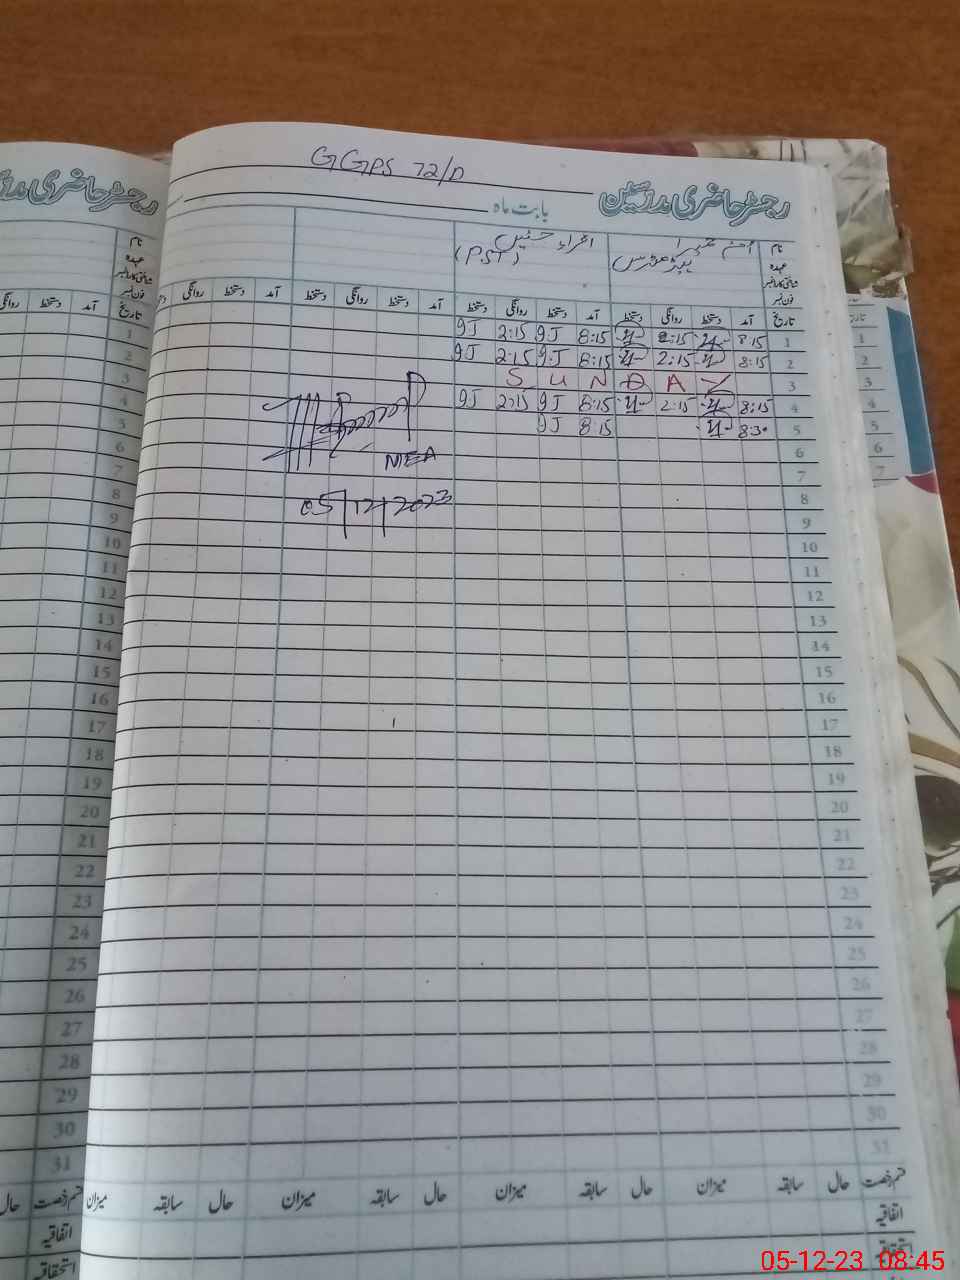 GGPS 72/D
رجسٹر حاضری مدرسین
بابت ماہ
رجسٹر حاضری
نام
عہدہ
شناختی کارڈ نمبر
فون نمبر
ہیڈ مدرس
(PST)
تاریخ آمد دستخط روانگی دستخط آمد دستخط روانگی دستخط آمد دستخط روانگی دستخط آمد دستخط روانگی
1 8:15 2:15 8:15 9J 2:15 9J
2 8:15 2:15 8:15 9J 2:15 9J
3 SUNDAY
4 8:15 2:15 8:15 9J 2:15 9J
5 8:30 8:15 9J
6
7
8
9
10
11
12
13
14
15
16
17
18
19
20
21
22
23
24
25
26
27
28
29
30
31
MEA
05/12/2023
قسم رخصت حال سابقہ میزان حال سابقہ میزان حال سابقہ میزان حال سابقہ
اتفاقیہ
استحقاقیہ
نام
عہدہ
شناختی کارڈ نمبر
فون نمبر
تاریخ آمد دستخط روانگی
1
2
3
4
5
6
7
8
9
10
11
12
13
14
15
16
17
18
19
20
21
22
23
24
25
26
27
28
29
30
31
میزان
قسم رخصت حال
اتفاقیہ
استحقاقیہ
1
2
3
4
5
6
7
05-12-23 08:45